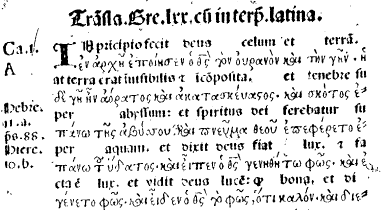 Trãsla. Gre. lxx. cũ interp̃. latina.
Ca. i. IN prĩcipio fecit deus celum et terrã.
A ἐν ἀρχῇ ἐποίησεν ὁ θς̀ τὸν οὐρανὸν καὶ τὴν γῆν. ἡ
at terra erat inuisibilis τ icõposita. et tenebre su
δὲ γῆ ἦν ἀόρατος καὶ ἀκατασκεύασος. καὶ σκότος ἐ
Hebre. per abyssum: et spiritus dei ferebatur su
11. a. πάνω τῆς ἀβύσσου. καὶ πνεῦμα θεοῦ ἐπεφέρετο ἐ
ps. 88. per aquam. et dixit deus fiat lux. τ fa
Hiere. πάνω τοῦ ὕδατος. καὶ εἶπεν ὁ θς̀ γενηθήτω φῶς. καὶ ἐ
10. b. cta ẽ lux. et vidit deus lucẽ: ꝙ bona, et di
γένετο φῶς. καὶ εἶδεν ὁ θς̀ τὸ φῶς, ὅτι καλόν. καὶ διε-